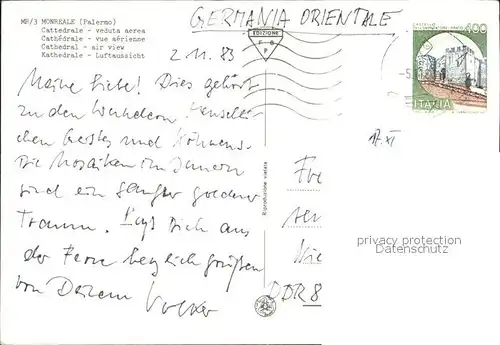 MR/3 MONREALE (Palermo)
Cattedrale - veduta aerea
Cathédrale - vue aérienne
Cathedral - air view
Kathedrale - Luftaussicht
GERMANIA ORIENTALE
EDIZIONE
2 11. 83
CASTELLO
400
ITALIA
17. XI
Meine Liebe! Dies gehört
zu den Wundern menschli-
chen Geistes und Könnens.
Die Mosaiken im Innern
sind ein goldener
Traum. Laß Dich aus
der Ferne herzlich grüßen
von Deinem Volker
Riproduzione vietata
Fr
DDR 8
privacy protection
Datenschutz